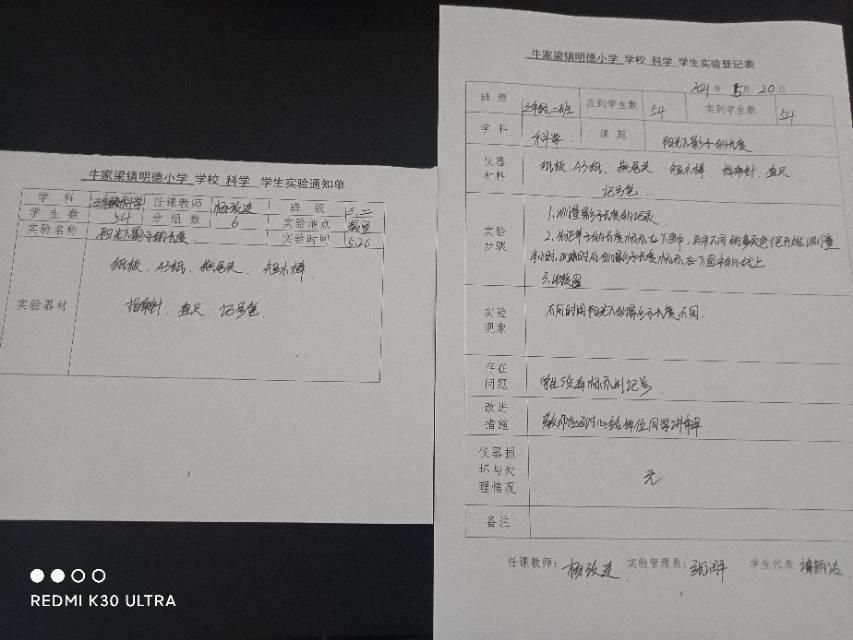 牛家梁镇明德小学 学校 科学 学生实验通知单
学科 三年级科学 任课教师 杨改连 班级 三.二
学生数 54 分组数 6 实验地点 教室
实验名称 阳光下影子的长度 实验时间 5.20
实验器材
纸板、A3纸、拖尾夹、短木棒
指南针、直尺、记号笔
REDMI K30 ULTRA
牛家梁镇明德小学 学校 科学 学生实验登记表
2021年 5月 20日
班级 三年级二班 应到学生数 54 实到学生数 54
学科 科学 课题 阳光下影子的长度
仪器材料
纸板、A3纸、拖尾夹、短木棒、指南针、直尺
记号笔
实验步骤
1.测量影子长度的记录
3.比较图
实验现象
不同时间阳光下的影子长度不同.
存在问题
学生没有标示出记号
改进措施
教师应耐心给每位同学讲解
仪器损坏与处理情况
无
备注
任课教师: 杨改连 实验管理员: 学生代表